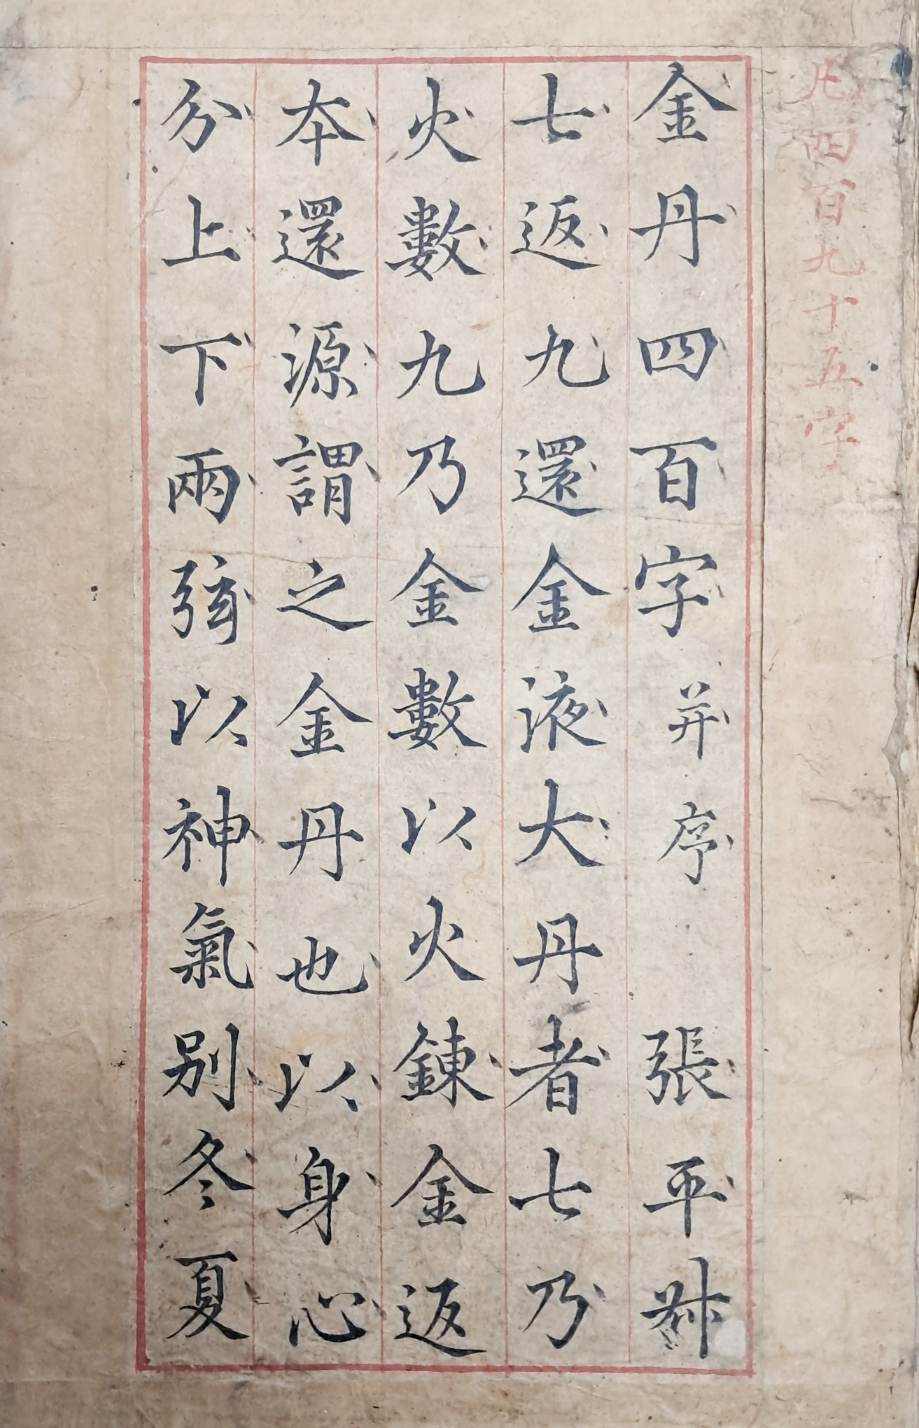 凡四百九十五字
金丹四百字并序 張平叔
七返九還金液大丹者七乃
火數九乃金數以火鍊金返
本還源謂之金丹也以身心
分上下兩弦以神氣别冬夏